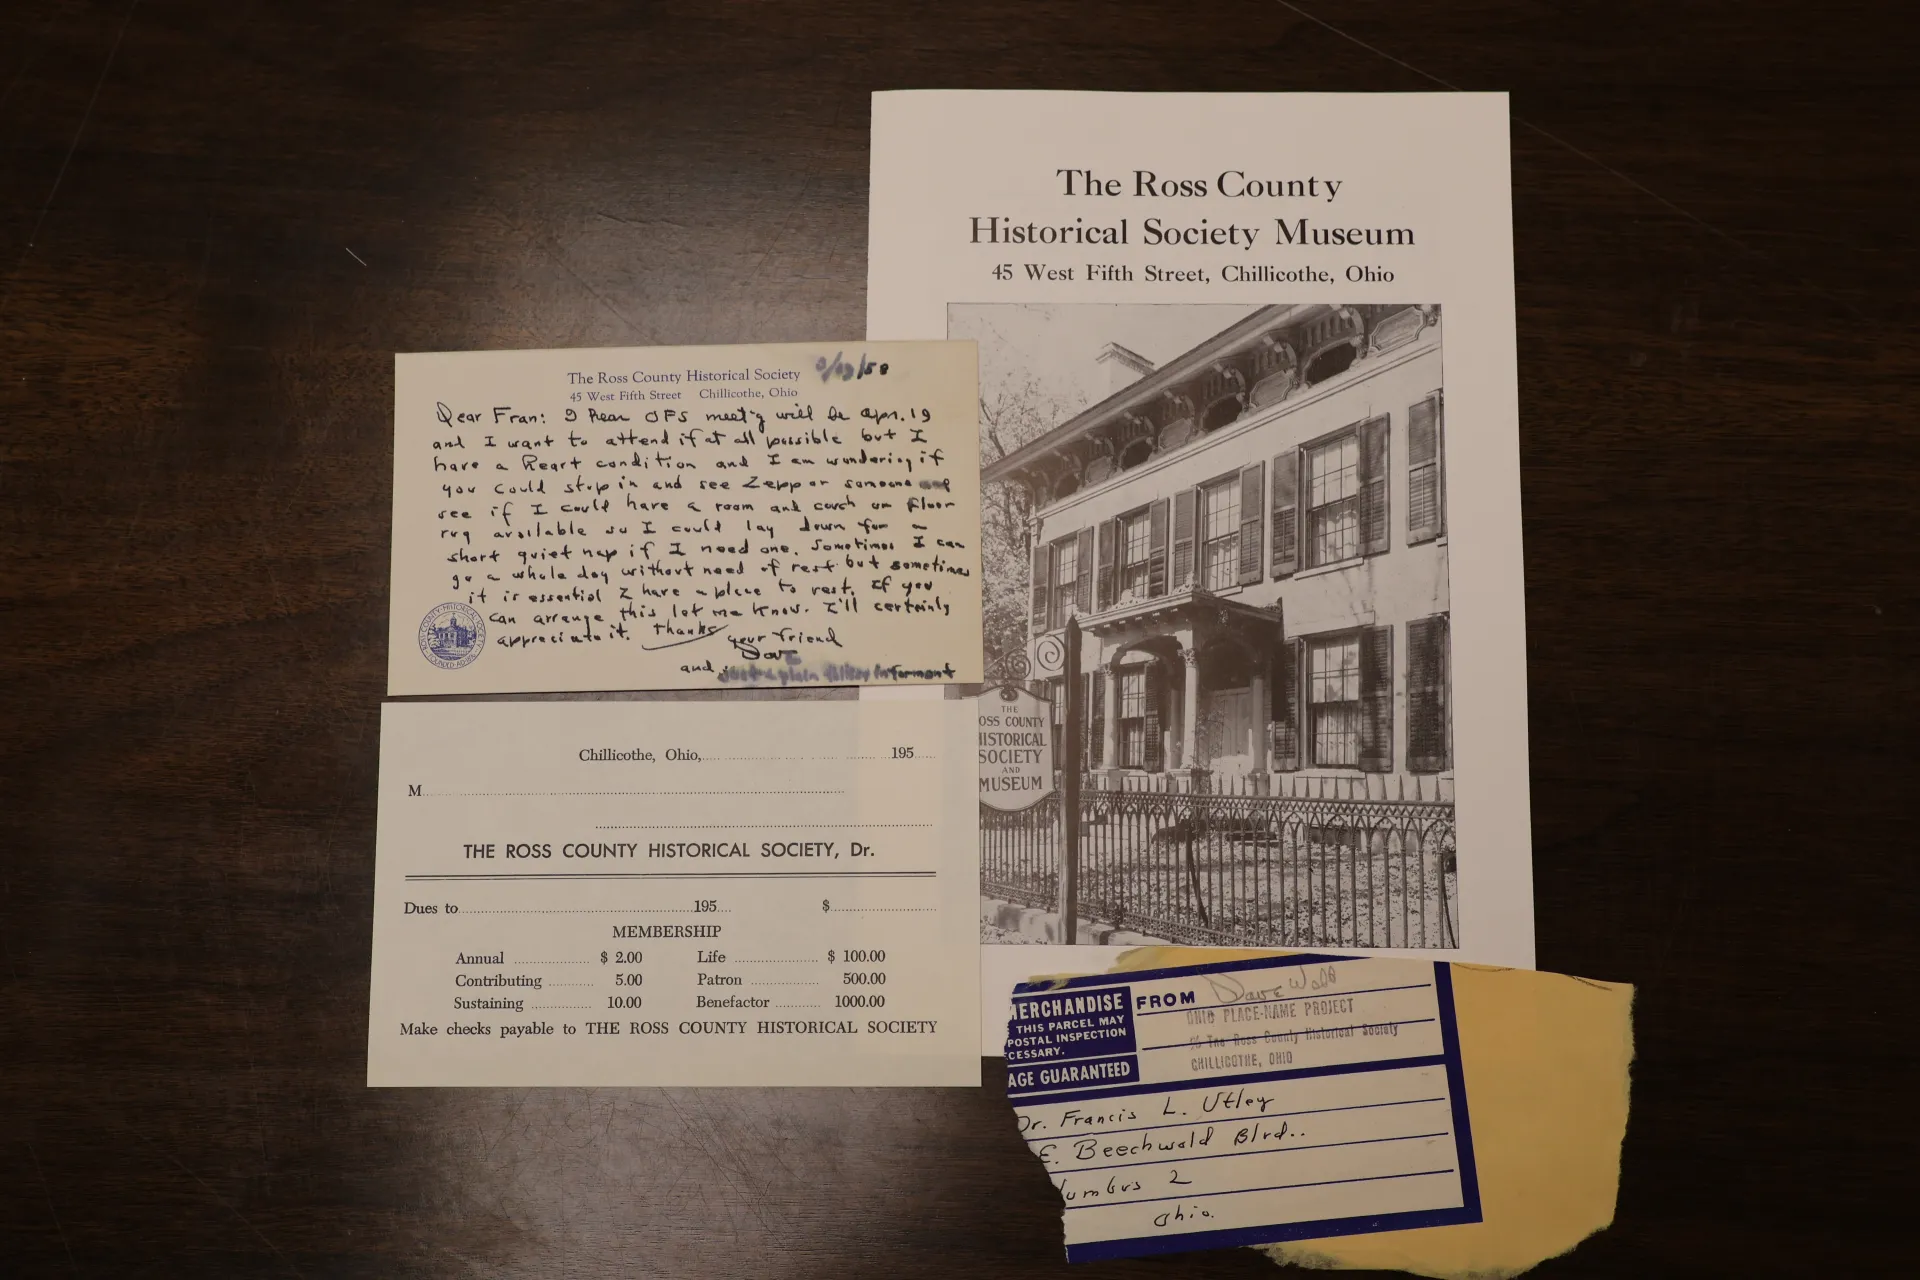 The Ross County Historical Society
45 West Fifth Street Chillicothe, Ohio
Dear Fran: I hear OFS meet'g will be Apr. 19
and I want to attend if at all possible but I
have a heart condition and I am wundering if
you could stop in and see Zepp or someone
see if I could have a room and couch or floor
rug available so I could lay down for a
short quiet nap if I need one. Sometimes I can
go a whole day without need of rest but sometimes
it is essential I have a place to rest. If you
can arrange this let me know. I'll certainly
appreciate it. Thanks your friend
Dave
and informant
ROSS COUNTY HISTORICAL SOCIETY
FOUNDED
Chillicothe, Ohio, 195
M
THE ROSS COUNTY HISTORICAL SOCIETY, Dr.
Dues to 195 $
MEMBERSHIP
Annual $ 2.00 Life $ 100.00
Contributing 5.00 Patron 500.00
Sustaining 10.00 Benefactor 1000.00
Make checks payable to THE ROSS COUNTY HISTORICAL SOCIETY
The Ross County
Historical Society Museum
45 West Fifth Street, Chillicothe, Ohio
THE
OSS COUNTY
HISTORICAL
SOCIETY
AND
MUSEUM
MERCHANDISE
THIS PARCEL MAY
POSTAL INSPECTION
CESSARY.
AGE GUARANTEED
FROM Dave Webb
OHIO PLACE-NAME PROJECT
% The Ross County Historical Society
CHILLICOTHE, OHIO
Dr. Francis L. Utley
E. Beechwald Blvd..
lumbus 2
Ohio.